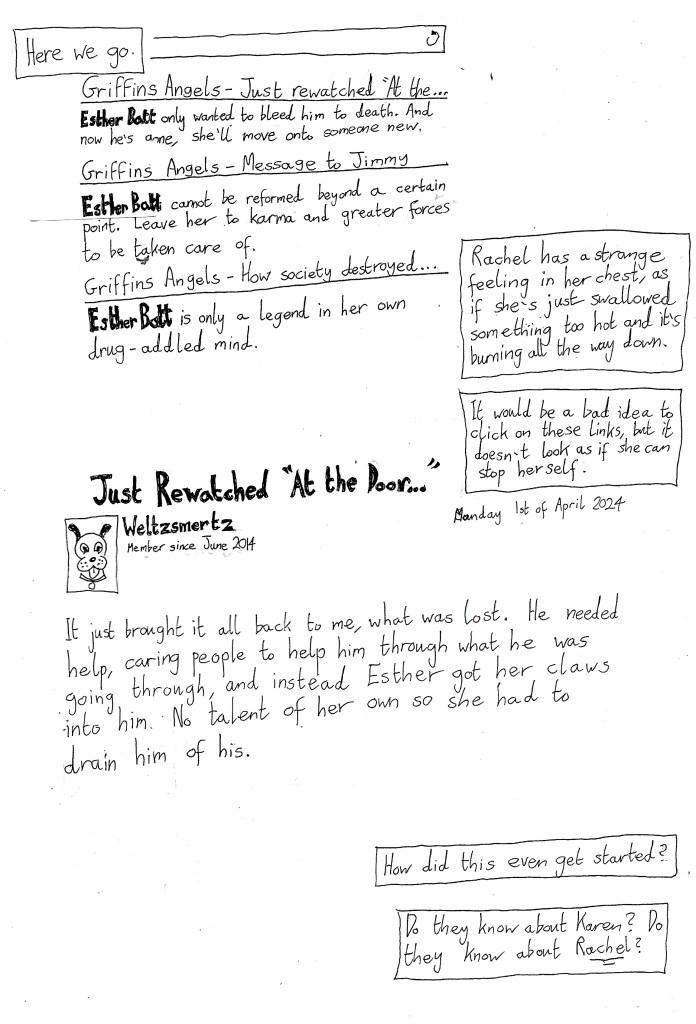 Here we go.
Griffins Angels - Just rewatched "At the...
Esther Bott only wanted to bleed him to death. And
now he's gone, she'll move onto someone new.
Griffins Angels - Message to Jimmy
Esther Bott cannot be reformed beyond a certain
point. Leave her to karma and greater forces
to be taken care of.
Griffins Angels - How society destroyed...
Esther Bott is only a legend in her own
drug-addled mind.
Rachel has a strange
feeling in her chest, as
if she's just swallowed
something too hot and it's
burning all the way down.
It would be a bad idea to
click on these links, but it
doesn't look as if she can
stop herself.
Just Rewatched "At the Door..."
Monday 1st of April 2024
Weltzsmertz
Member since June 2014
It just brought it all back to me, what was lost. He needed
help, caring people to help him through what he was
going through, and instead Esther got her claws
into him. No talent of her own so she had to
drain him of his.
How did this even get started?
Do they know about Karen? Do
they know about Rachel?